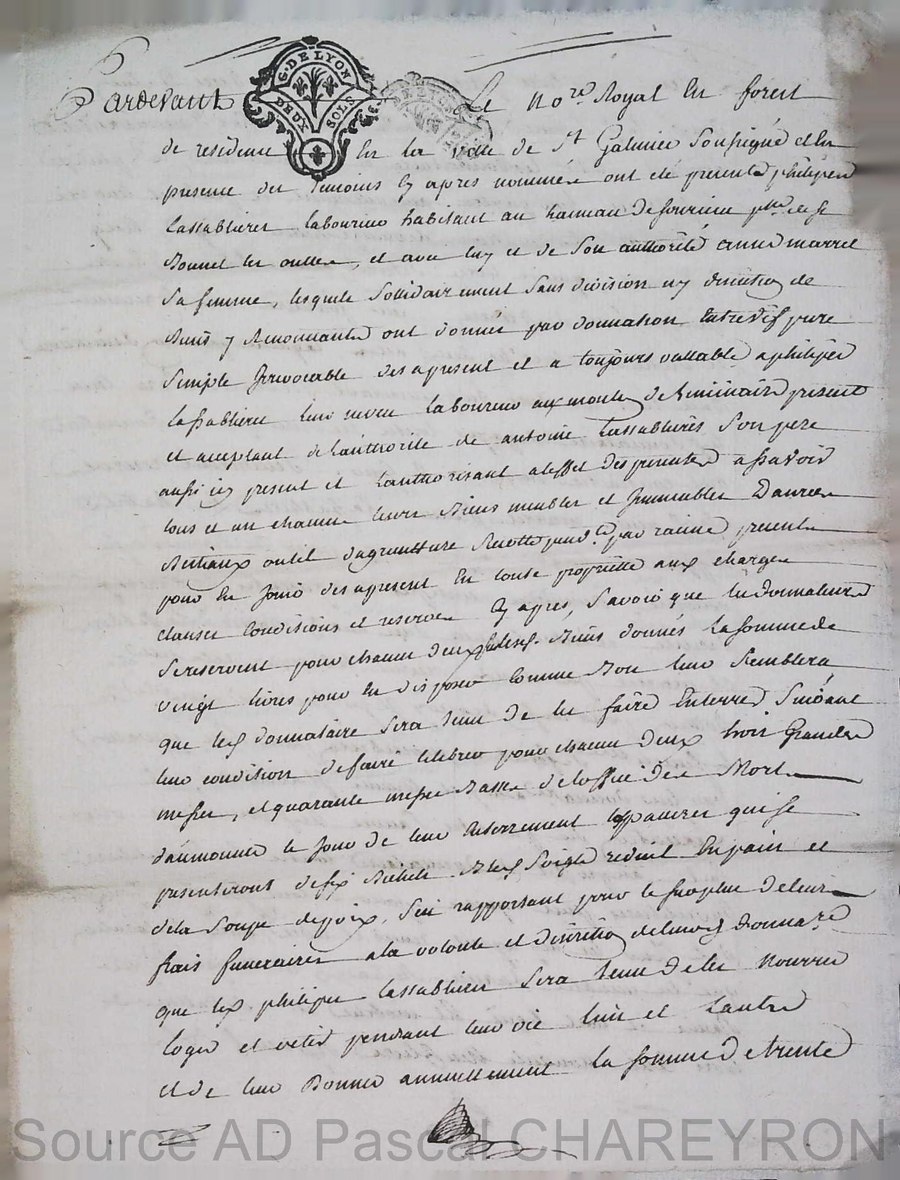 G. DE LYON
DEUX SOLS
Pardevant Le no.re Royal en forest
de residence en la ville de St Galmier soussigné et en
presence des temoins cy apres nommés ont été presents philipes
Lassablieres laboureur habitant au hameau de sse de St
Bonnet les oulles, et avec luy et de son authorité anne marrel
sa femme, lesquels sollidairement sans division ny discution de
biens y Renonceants ont donné par donnation entrevif pure
simple Irrevocable des apresent et a toujours vallable a philipes
Lassabliere leur neveu laboureur aux present
et acceptant de lauthorité de antoine Lassablieres son pere
aussi icy present et lauthorisant a leffet des presentes assavoir
tous et un chacuns leurs biens meubles et Immeubles Danrées
Bestiaux outils dagriculture Recolte pend.te par racine presents
pour en jouir des apresent en toute propriété aux charges
clauses conditions et reserves cy apres, savoir que les donnateurs
se reservent pour chacun deux sur lesd. biens donnés la somme de
vingt livres pour en disposer comme bon leur semblera
que led donnataire sera tenu de les faire enterrer suivant
leur condition de faire celebrer pour chacun deux trois Grandes
messes, et quarante messes basses de loffice des Morts
daumoner le jour de leur enterrement es pauvres qui se
presenteront de six bichets bled soigle reduit en pain et
de la soupe de pois, sen rapportant pour le surplus de leurs
frais funeraires a la volonté et discrétion de leurd donna.re
que led philipe Lassablieres sera tenu de les nourrir
loger et vetir pendant leur vie lun et lautre
et de leur donner annuellement la somme de trente
Source AD Pascal CHAREYRON